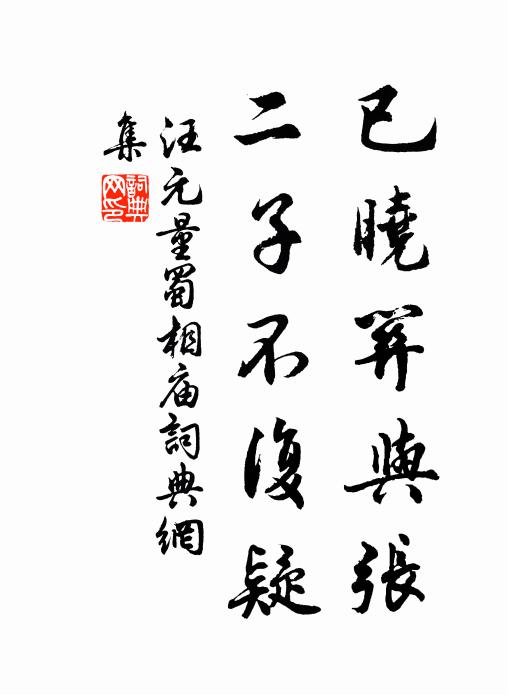 已曉關與張
二子不復疑
汪元量蜀相庙詞典網
集
詞典網印